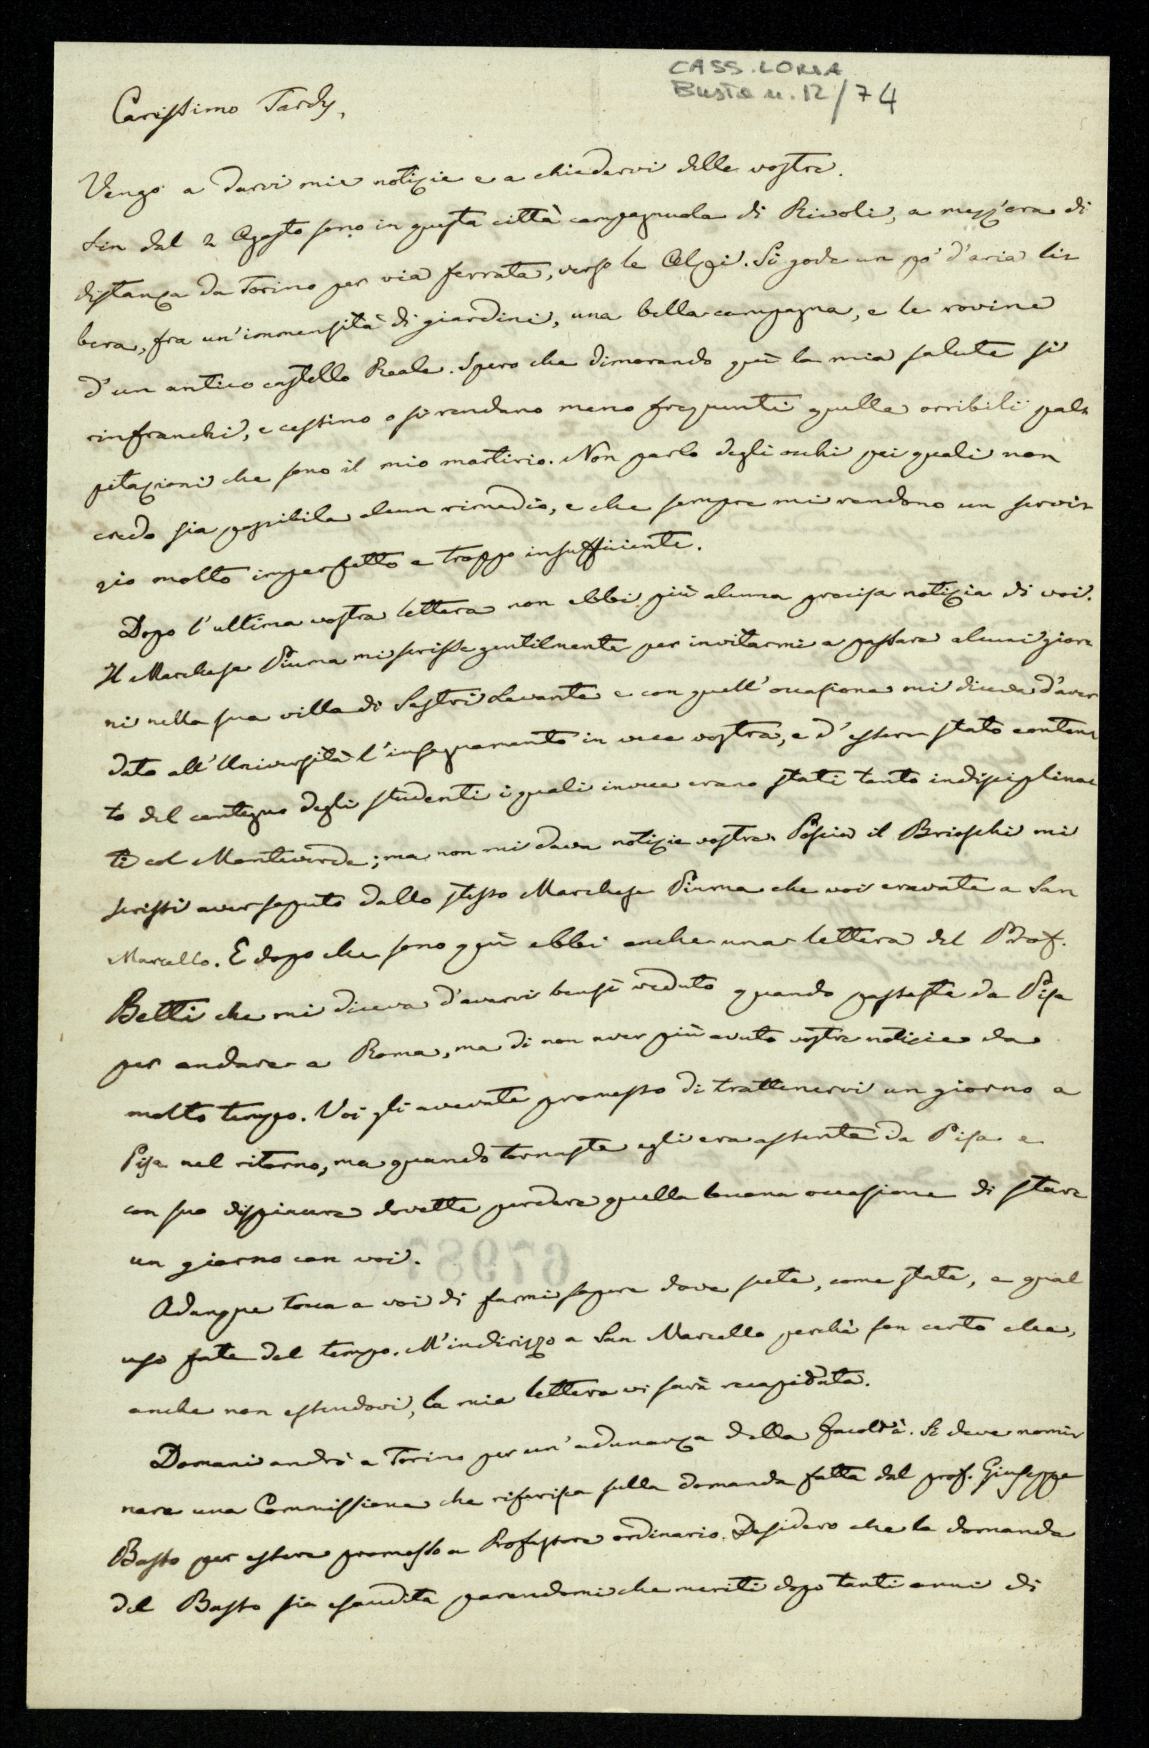 CASS. LORIA
Busta n. 12/74
Carissimo Tardy,
Vengo a darvi mie notizie e a chiedervi delle vostre.
Sin dal 2 Agosto sono in questa città campagnuola di Rivoli, a mezz'ora di
distanza da Torino per via ferrata, verso le Alpi. Si gode un po' d'aria li-
bera, fra un'immensità di giardini, una bella campagna, e le rovine
d'un antico castello Reale. Spero che dimorando quì la mia salute si
rinfranchi, e cessino o si rendano meno frequenti quelle orribili pal-
pitazioni che sono il mio martirio. Non parlo degli occhi pei quali non
credo sia possibile alcun rimedio, e che sempre mi rendono un servi-
zio molto imperfetto e troppo insufficiente.
Dopo l'ultima vostra lettera non ebbi più alcuna precisa notizia di voi.
Il Marchese Piuma mi scrisse gentilmente per invitarmi a passare alcuni gior-
ni nella sua villa di Sestri Levante e con quell'occasione mi diceva d'aver
dato all'Università l'insegnamento in vece vostra, e d'essere stato conten-
to del contegno degli studenti i quali invece erano stati tanto indisciplina-
ti col Monteverde; ma non mi dava notizie vostre. Poscia il Brioschi mi
scrisse aver saputo dallo stesso Marchese Piuma che voi eravate a San
Marcello. E dopo che sono quì ebbi anche una lettera del Prof.
Betti che mi diceva d'avervi bensì veduto quando passaste da Pisa
per andare a Roma, ma di non aver più avuto vostre notizie da
molto tempo. Voi gli avevate promesso di trattenervi un giorno a
Pisa nel ritorno, ma quando tornaste egli era assente da Pisa e
con suo dispiacere dovette perdere quella buona occasione di stare
un giorno con voi.
67987
Adunque tocca a voi di farmi sapere dove siete, come state, e qual
uso fate del tempo. M'indirizzo a San Marcello perchè son certo che,
anche non essendovi, la mia lettera vi sarà recapitata.
Domani andrò a Torino per un'adunanza della Facoltà. Si deve nomi-
nare una Commissione che riferisca sulla domanda fatta dal prof. Giuseppe
Basso per essere promosso a Professore ordinario. Desidero che la domanda
del Basso sia esaudita parendomi che meriti dopo tanti anni di